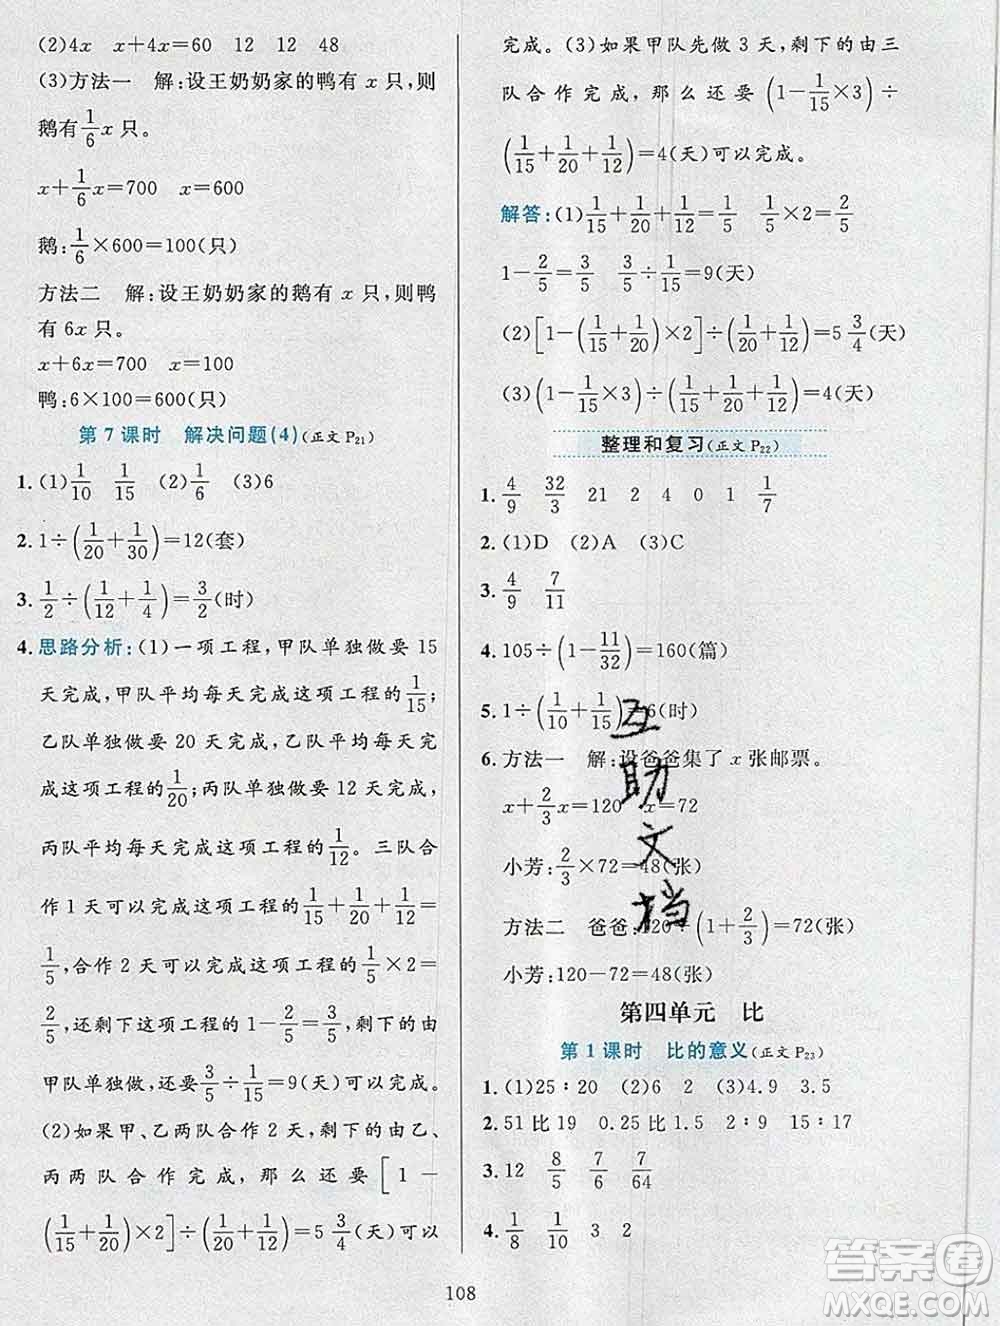 (2)4x　x+4x=60　12　12　48
(3)方法一　解:设王奶奶家的鸭有 x 只,则
鹅有1/6x 只。
x+1/6x=700　x=600
鹅:1/6×600=100(只)
方法二　解:设王奶奶家的鹅有 x 只,则鸭
有 6x 只。
x+6x=700　x=100
鸭:6×100=600(只)
第 7 课时　解决问题(4)(正文 P21)
1. (1)1/10　1/15　(2)1/6　(3)6
2. 1÷(1/20+1/30)=12(套)
3. 1/2÷(1/12+1/4)=3/2(时)
4. 思路分析:(1)一项工程,甲队单独做要 15
天完成,甲队平均每天完成这项工程的1/15;
乙队单独做要 20 天完成,乙队平均每天完
成这项工程的1/20;丙队单独做要 12 天完成,
丙队平均每天完成这项工程的1/12。三队合
作 1 天可以完成这项工程的1/15+1/20+1/12=
1/5,合作 2 天可以完成这项工程的1/5×2=
2/5,还剩下这项工程的1-2/5=3/5,剩下的由
甲队单独做,还要3/5÷1/15=9(天)可以完成。
(2)如果甲、乙两队合作 2 天,剩下的由乙、
丙两队合作完成,那么还要[1-
(1/15+1/20)×2]÷(1/20+1/12)=5 3/4(天)可以
完成。(3)如果甲队先做 3 天,剩下的由三
队合作完成,那么还要(1-1/15×3)÷
(1/15+1/20+1/12)=4(天)可以完成。
解答:(1)1/15+1/20+1/12=1/5　1/5×2=2/5
1-2/5=3/5　3/5÷1/15=9(天)
(2)[1-(1/15+1/20)×2]÷(1/20+1/12)=5 3/4(天)
(3)(1-1/15×3)÷(1/15+1/20+1/12)=4(天)
整理和复习(正文 P22)
1. 4/9　32/3　21　2　4　0　1　1/7
2. (1)D　(2)A　(3)C
3. 4/9　7/11
4. 105÷(1-11/32)=160(篇)
5. 1÷(1/10+1/15)=6(时)
6. 方法一　解:设爸爸集了 x 张邮票。
x+2/3x=120　x=72
小芳:2/3×72=48(张)
方法二　爸爸:120÷(1+2/3)=72(张)
小芳:120-72=48(张)
第四单元　比
第 1 课时　比的意义(正文 P23)
1. (1)25∶20　(2)6　2　(3)4.9　3.5
2. 51 比 19　0.25 比 1.5　2∶9　15∶17
3. 12　8/5　7/6　7/64
4. 1/8　1/10　3　2
108
互助文档
答案圈
MXQE.COM